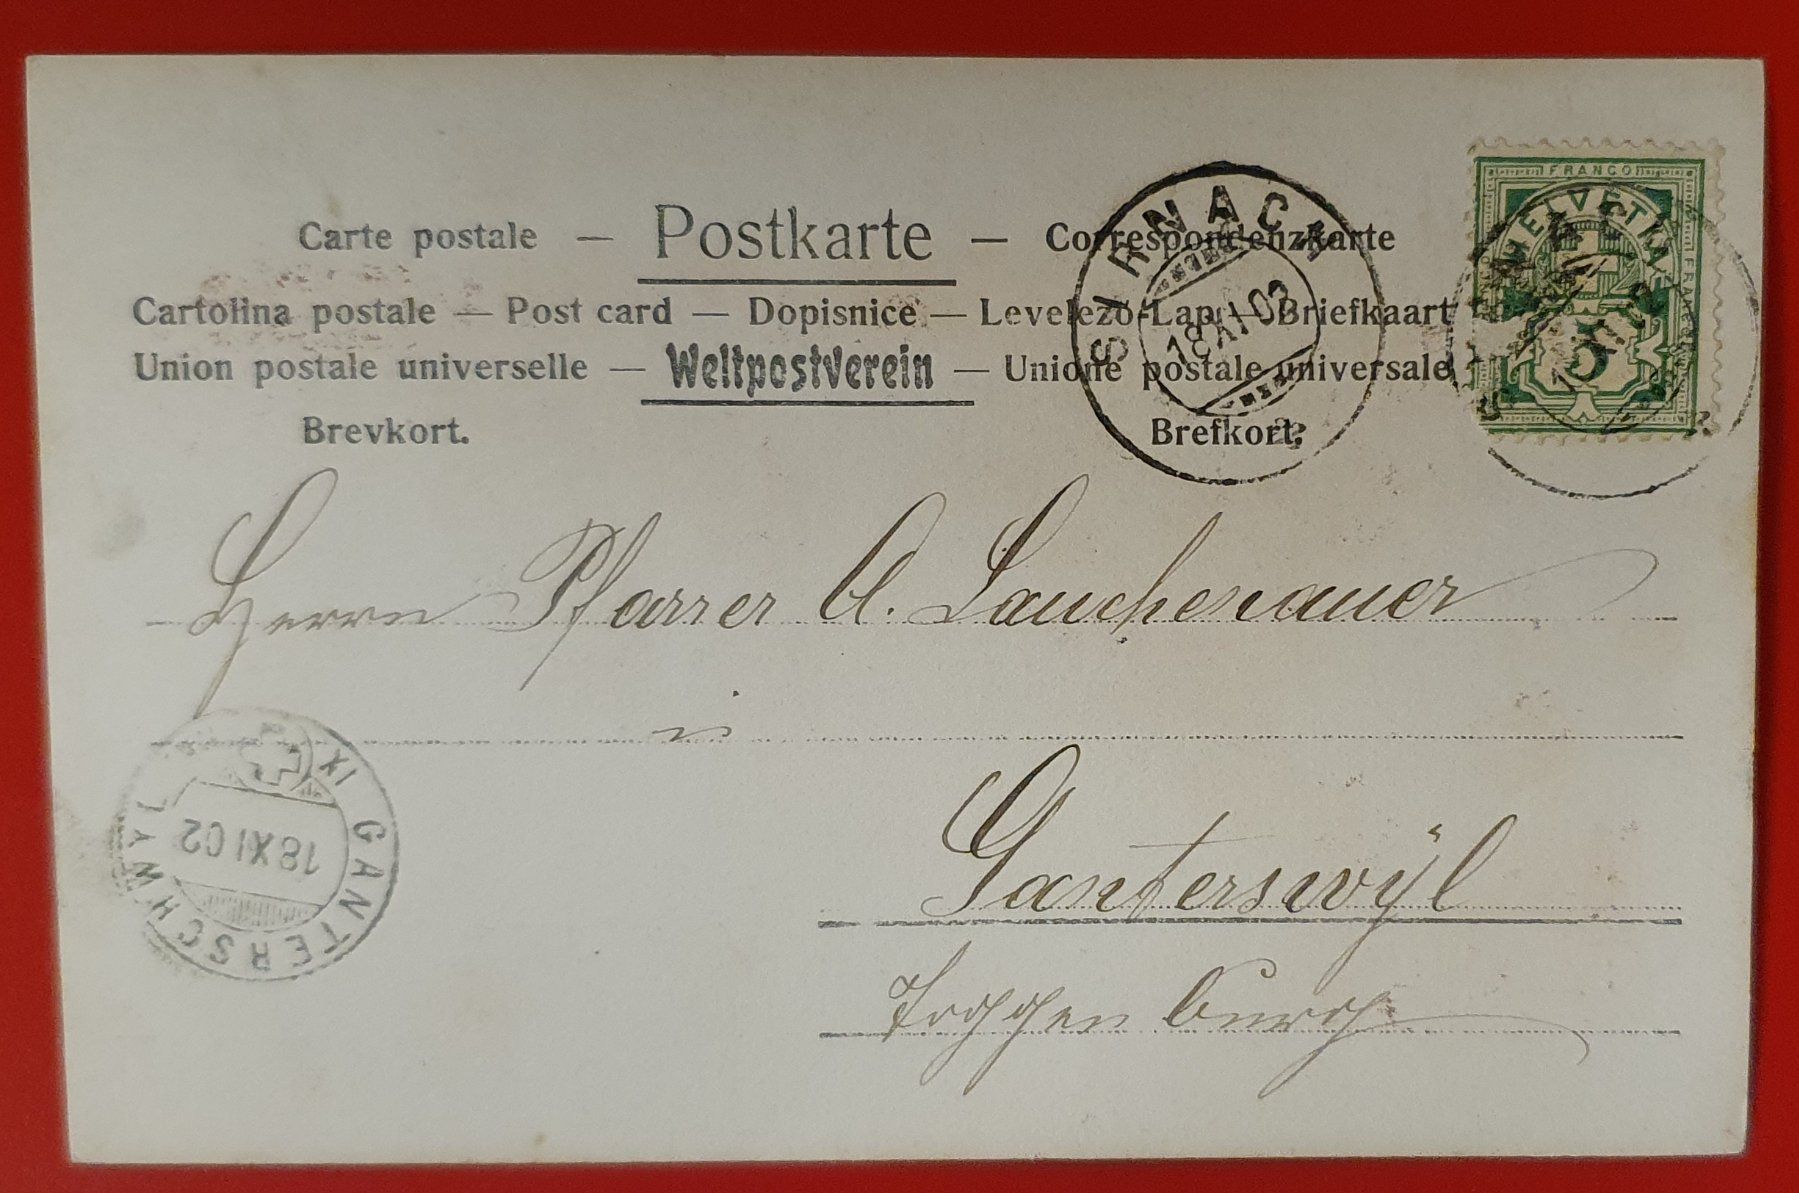 Carte postale — Postkarte — Correspondenzkarte
Cartolina postale — Post card — Dopisnice — Levelező-Lap — Briefkaart
Union postale universelle — Weltpostverein — Unione postale universale
Brevkort. Brefkort.
SIRNACH
18 XI 02
FRANCO
HELVETIA
5
Herrn Pfarrer A. Lauchenauer
in
Ganterswÿl
Toggenburg
GANTERSCHWYL
18 XI 02
XI